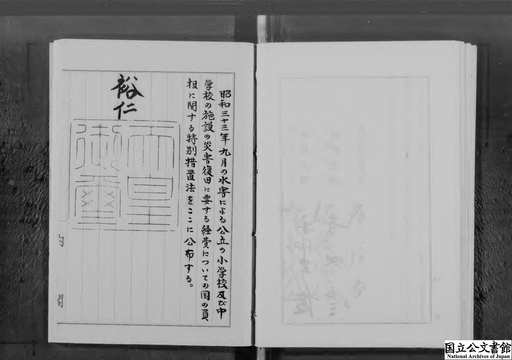 昭和三十三年九月の水害による公立の小学校及び中
学校の施設の災害復旧に要する経費についての国の負
担に関する特別措置法をここに公布する。
裕仁
天皇
御璽
国立公文書館
National Archives of Japan